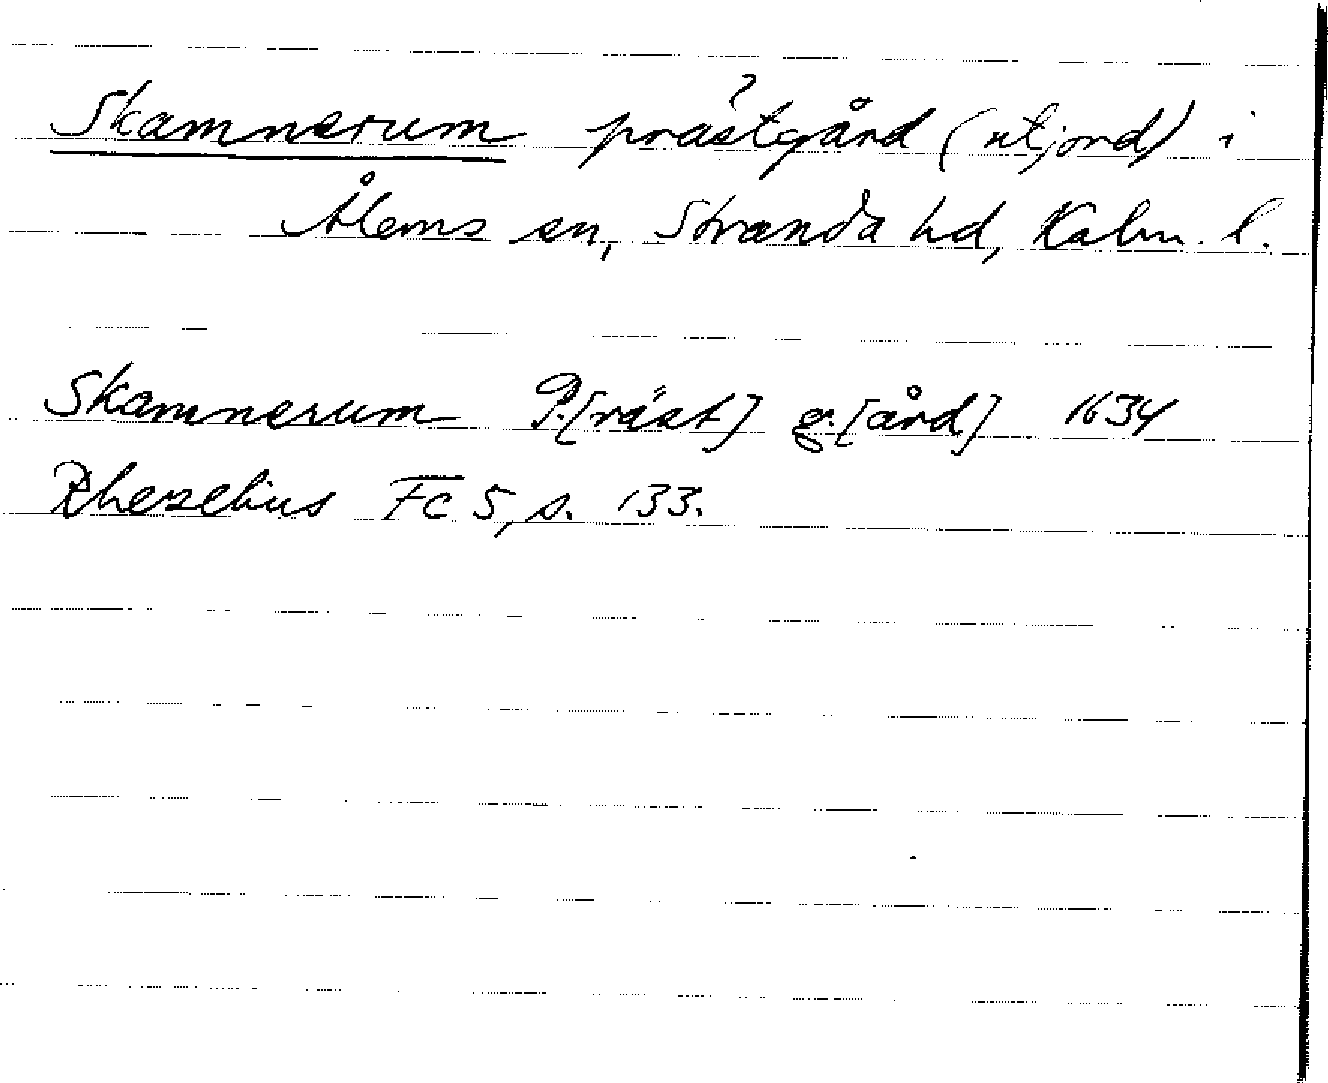 Skamnerum ? prästgård (utjord) i
Ålems sn, Stranda hd, Kalm. l.
Skamnerum P.[räst] g.[ård] 1634
Rhezelius Fc 5, s. 133.